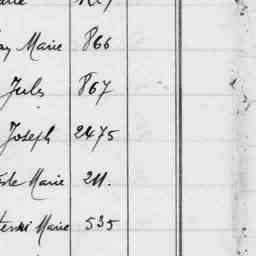 Marie 866
Jules 867
Joseph 2475
Marie 211.
Marie 535